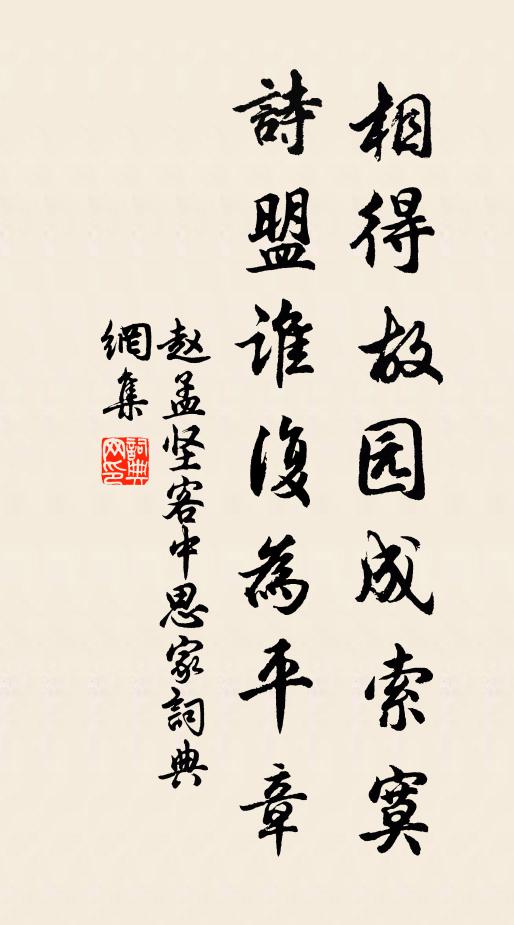 相得故园成索寞
詩盟誰復為平章
赵孟坚客中思家詞典
網集
詞典网印